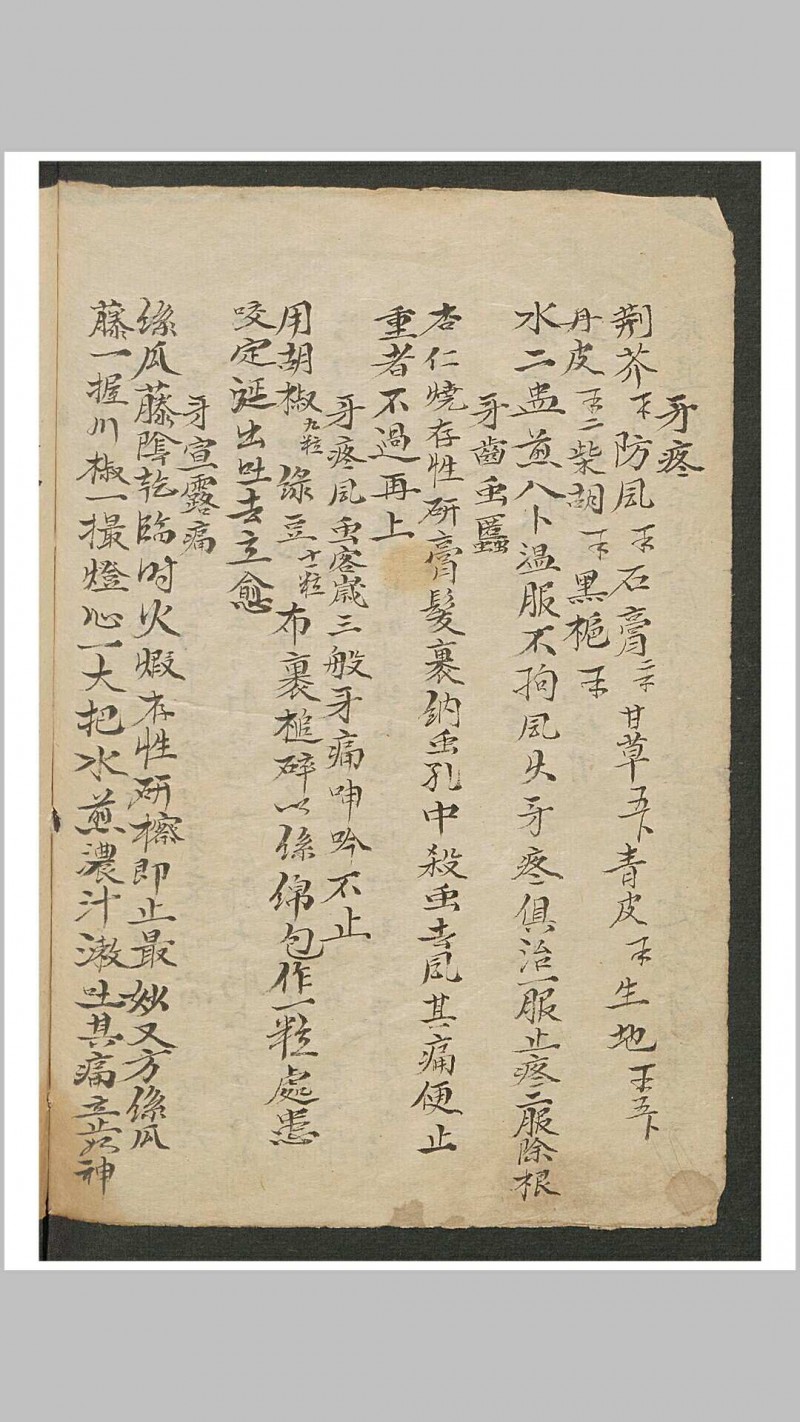 牙疼
荆芥 防風 石膏 甘草 青皮 生地
丹皮 柴胡 黑梔
水二盅煎八卜温服不拘風火牙疼俱治一服止疼二服除根
牙齒虫䘌
杏仁燒存性研膏髮裹納虫孔中殺虫去風其痛便止
重者不過再上
牙疼風虫客歲三般牙痛呻吟不止
用胡椒九粒綠豆十一粒布裹槌碎以絲綿包作一粒處患
咬定涎出吐去立愈
牙宣露痛
絲瓜藤陰乾臨时火煅存性研擦即止最妙又方絲瓜
藤一握川椒一撮燈心一大把水煎濃汁漱吐其痛立止如神